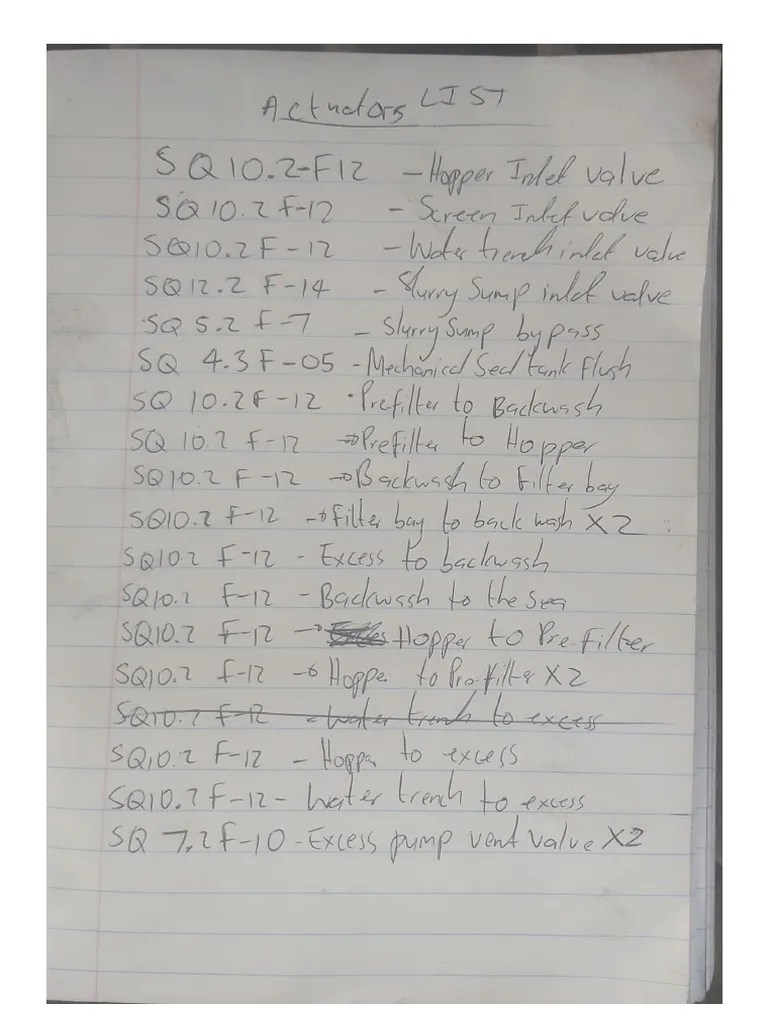 Actuators LIST
SQ10.2-F12 - Hopper Inlet valve
SQ10.2 F-12 - Screen Inlet valve
SQ10.2 F-12 - Water trench inlet valve
SQ12.2 F-14 - Slurry Sump inlet valve
SQ 5.2 F-7 - Slurry Sump bypass
SQ 4.3 F-05 - Mechanical Seal tank flush
SQ 10.2F-12 - Prefilter to Backwash
SQ 10.2 F-12 → Prefilter to Hopper
SQ10.2 F-12 → Backwash to Filter bay
SQ10.2 F-12 → Filter bay to back wash X2
SQ10.2 F-12 - Excess to backwash
SQ10.2 F-12 - Backwash to the sea
SQ10.2 F-12 → Hopper to Pre.filter
SQ10.2 F-12 → Hopper to Pre.filter X2
SQ10.2 F-12 - Water trench to excess
SQ10.2 F-12 - Hopper to excess
SQ10.2 F-12 - Water trench to excess
SQ 7.2 F-10 - Excess pump vent valve X2